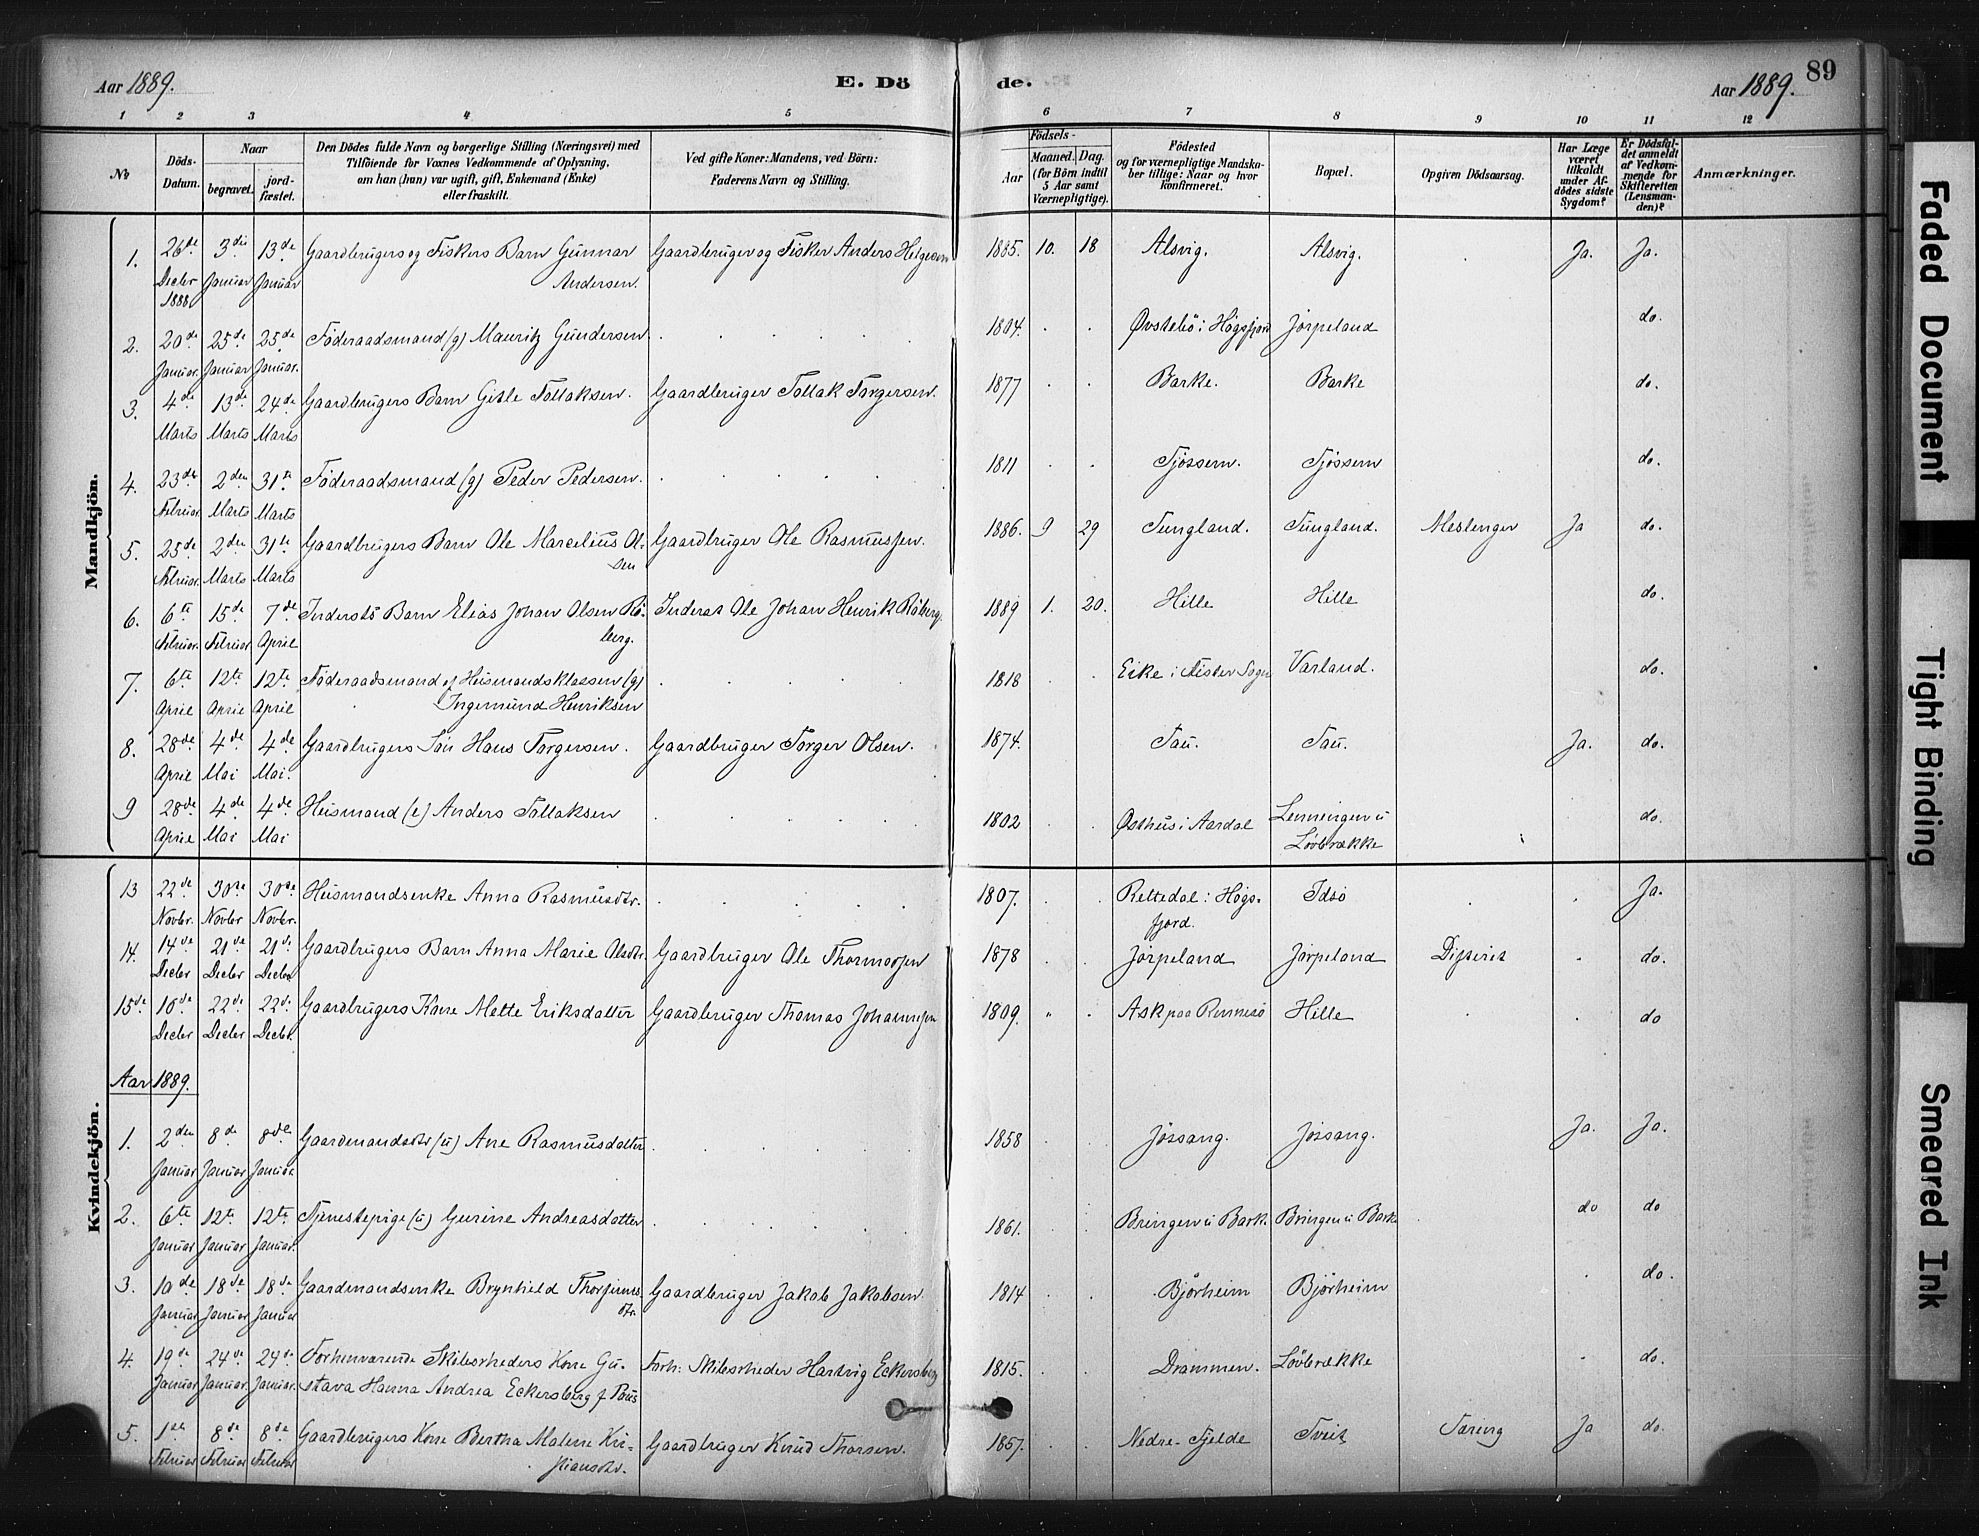 Aar 1889. E. Dö de. Aar 1889. 89
1 2 3 4 5 6 7 8 9 10 11 12
No
Döds-Datum.
Naar
begravet.
jord-fæstet.
Den Dödes fulde Navn og borgerlige Stilling (Næringsvei) med
Tilföiende for Voxnes Vedkommende af Oplysning,
om han (hun) var ugift, gift, Enkemand (Enke)
eller fraskilt.
Ved gifte Koner: Mandens, ved Börn:
Faderens Navn og Stilling.
Födsels-
Aar
Maaned. Dag.
(for Börn indtil
5 Aar samt
Værnepligtige).
Födested
og for værnepligtige Mandska-
ber tillige: Naar og hvor
konfirmeret.
Bopæl.
Opgiven Dödsaarsag.
Har Læge
været
tilkaldt
under Af-
dödes sidste
Sygdom?
Er Dödsfal-
det anmeldt
af Vedkom-
mende for
Skifteretten
(Lensman-
den)?
Anmærkninger.
Mandkjön.
1. 26de 3die 13de Gaardbrugers og Fiskers Barn Gunnar Gaardbruger og Fisker Anders Helgesen 1885. 10. 18 Alsvig. Alsvig. Ja. Ja.
Decbr Januar Januar Andersen.
1888
2. 20de 25de 25de Föderaadsmand (g) Mauritz Gundersen 1804. Øvstebö i Högsfjord Jörpeland do.
Januar. Januar Januar.
3. 4de 13de 24de Gaardbrugers Barn Gitle Tollaksen. Gaardbruger Tollak Torgersen. 1877 Barke. Barke do.
Marts Marts Marts
4. 23de 2den 31te Föderaadsmand (g) Peder Pedersen. 1811 Tjössem. Tjössem do.
Februar. Marts Marts
5. 25de 2den 31te Gaardbrugers Barn Ole Marcelius Ol- Gaardbruger Ole Rasmussen. 1886. 9 29 Tungland. Tungland. Meslenger Ja do.
Februar. Marts Marts sen
6. 6te 15de 7de Indersts Barn Elias Johan Olsen Rö- Inderst Ole Johan Henrik Röberg. 1889 1. 20. Hille Hille do.
Februar. Februar April berg.
7. 6te 12te 12te Föderaadsmand af Husmandsklassen (g) 1818 Eike i Fister Sogn Varland. do.
April April April Ingemund Henriksen
8. 28de 4de 4de Gaardbrugers Sön Hans Torgersen. Gaardbruger Torger Olsen. 1874. Tau. Tau. Ja. do.
April Mai Mai.
9 28de 4de 4de Husmand (e) Anders Tollaksen 1802 Østhus i Aardal Lenningen u do.
April Mai Mai Lövbrække
Kvindekjön.
13 22de 30te 30te Husmandsenke Anna Rasmusdtr. 1807. Rettedal i Högs- Idsö Ja.
Novbr. Novbr Novbr. fjord.
14. 14de 21de 21de Gaardbrugers Barn Anna Marie Olsdtr. Gaardbruger Ole Thormodsen 1878 Jörpeland Jörpeland Difterit do.
Decbr Decbr Decbr.
15de 16de 22de 22de Gaardbrugers Kone Mette Eriksdatter Gaardbruger Thomas Johannesen 1809. Ask paa Rennesö Hille do
Decbr Decbr Decbr.
Aar 1889.
1. 2den 8de 8de Gaardmandsdtr (u) Ane Rasmusdatter 1858 Jössang. Jössang. Ja. Ja.
Januar Januar Januar
2. 6te 12te 12te Tjenestepige (u) Gurine Andreasdatter 1861. Bringen u Bark. Bringen u Barke do do
Januar Januar Januar.
3. 10de 18de 18de Gaardmandsenke Brynhild Thorfinns- Gaardbruger Jakob Jakobsen. 1814 Björheim Björheim do.
Januar Januar Januar dtr.
4. 19de 24de 24de Forhenværende Skibsrheders Kone Gu- Forh: Skibsrheder Hartvig Eckersberg 1815. Drammen. Lövbrække do.
Januar Januar. Januar. stava Hanna Andrea Eckersberg f Paus
5. 1ste 8de 8de Gaardbrugers Kone Bertha Malene Kri- Gaardbruger Knud Thorsen. 1857. Nedre-Tjelde Tveit Tæring Ja do.
Februar Februar Februar stiansdtr.
Faded Document
Tight Binding
Smeared Ink